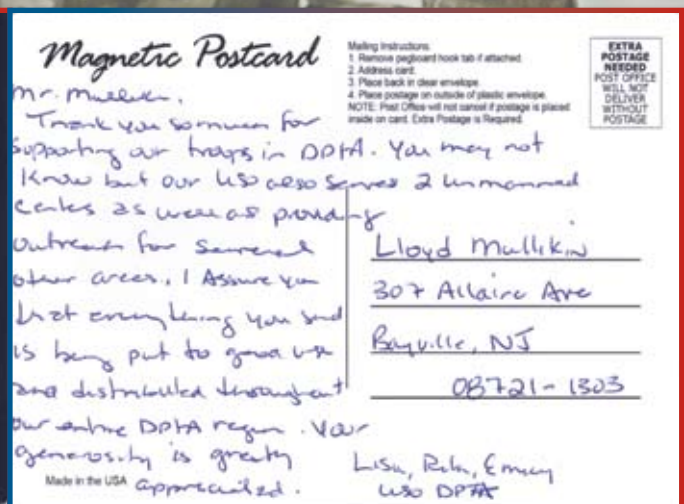 Magnetic Postcard
Mailing Instructions
1. Remove pegboard hook tab if attached.
2. Address card.
3. Place back in clear envelope.
4. Place postage on outside of plastic envelope.
NOTE: Post Office will not cancel if postage is placed
inside on card. Extra Postage is Required.
EXTRA
POSTAGE
NEEDED
POST OFFICE
WILL NOT
DELIVER
WITHOUT
POSTAGE
Mr. Mullikin,
Thank you so much for
supporting our troops in DPTA. You may not
know but our USO also serves 2 unmanned
centers as well as providing
outreach for several
other areas. I Assure you
that everything you send
is being put to good use
and distributed throughout
our entire DPTA region. Your
generosity is greatly
appreciated.
Lloyd Mullikin
307 Allaire Ave
Bayville, NJ
08721-1303
Lisa,
USO DPTA
Made in the USA